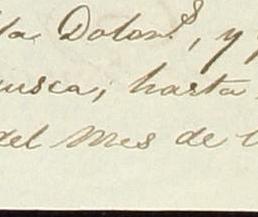 la Dolor.s, y
usca, hasta
del mes de